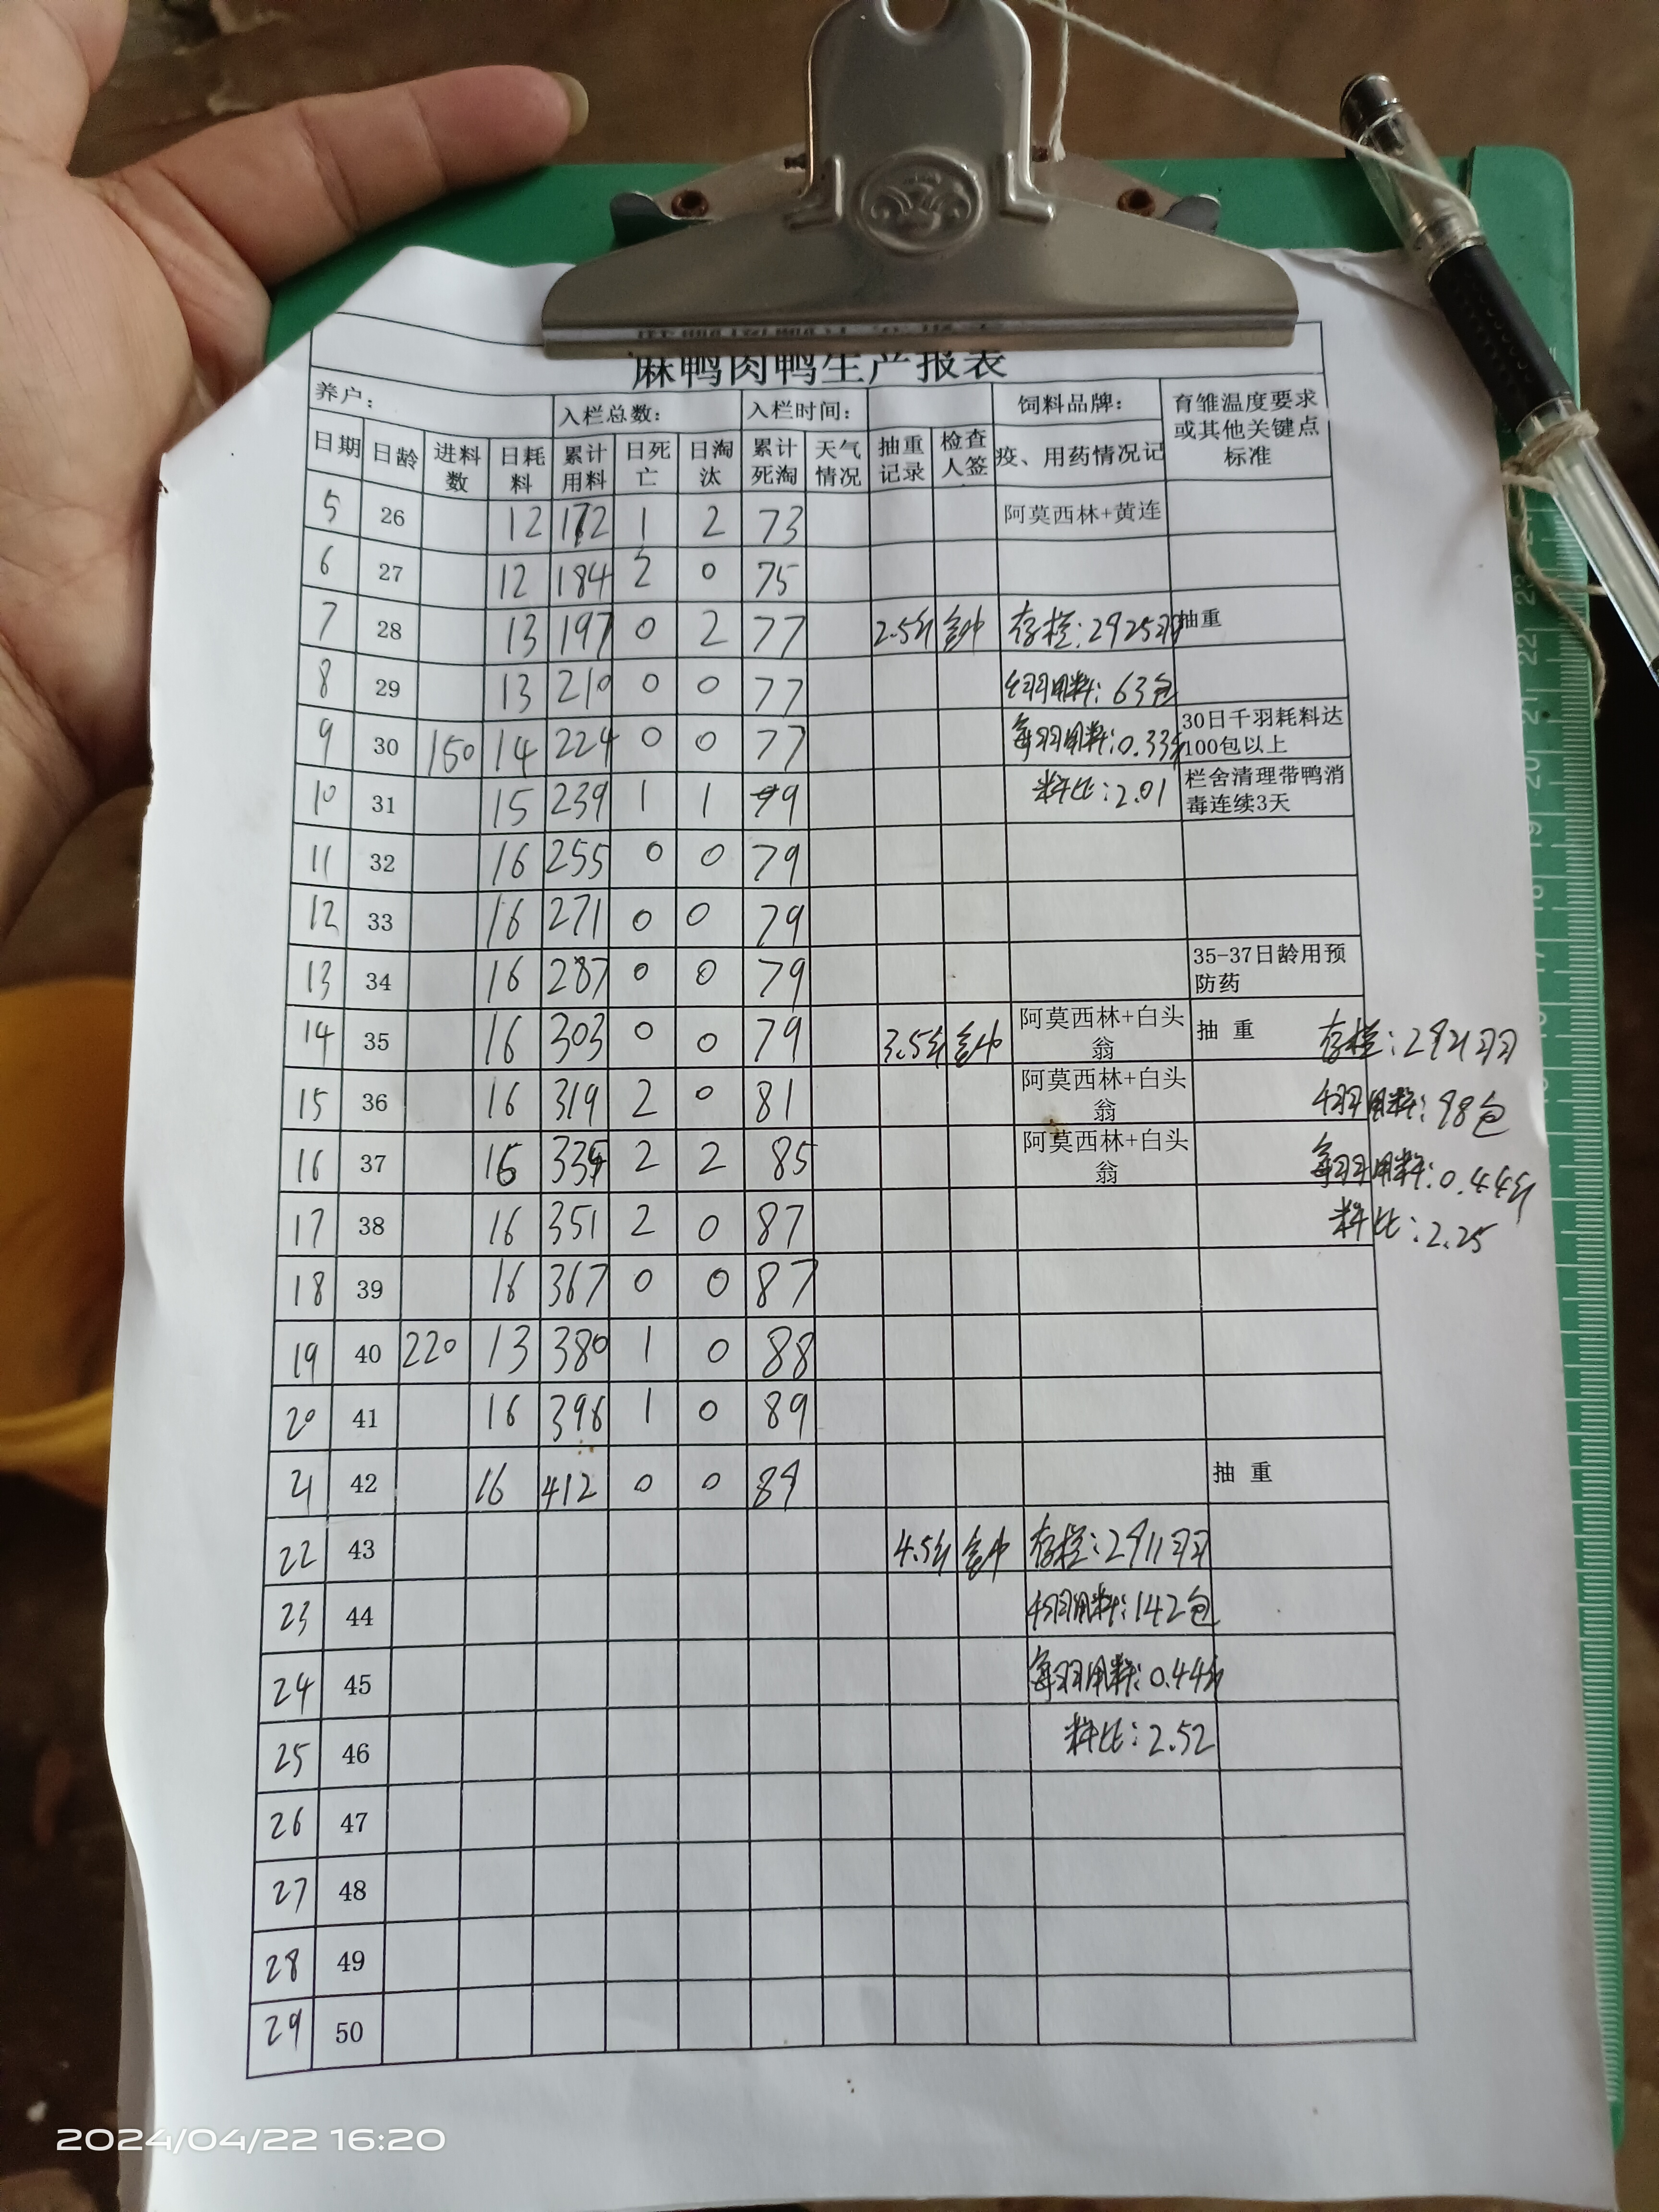 麻鸭肉鸭生产报表
养户： 入栏总数： 入栏时间： 饲料品牌： 育雏温度要求或其他关键点标准
日期 日龄 进料数 日耗料 累计用料 日死亡 日淘汰 累计死淘 天气情况 抽重记录 检查人签 疫、用药情况记
5 26 12 172 1 2 73 阿莫西林+黄连
6 27 12 184 2 0 75
7 28 13 197 0 2 77 2.5斤 存栏：2925羽 抽重
8 29 13 210 0 0 77 千羽用料：63包
9 30 150 14 224 0 0 77 每羽用料：0.33斤 30日千羽耗料达100包以上
10 31 15 239 1 1 79 料比：2.01 栏舍清理带鸭消毒连续3天
11 32 16 255 0 0 79
12 33 16 271 0 0 79
13 34 16 287 0 0 79 35-37日龄用预防药
14 35 16 303 0 0 79 3.5斤 阿莫西林+白头翁 抽 重 存栏：2921羽
15 36 16 319 2 0 81 阿莫西林+白头翁 千羽用料：98包
16 37 16 335 2 2 85 阿莫西林+白头翁 每羽用料：0.44斤
17 38 16 351 2 0 87 料比：2.25
18 39 16 367 0 0 87
19 40 220 13 380 1 0 88
20 41 16 396 1 0 89
21 42 16 412 0 0 89 抽 重
22 43 4.5斤 存栏：2911羽
23 44 千羽用料：142包
24 45 每羽用料：0.44斤
25 46 料比：2.52
26 47
27 48
28 49
29 50
2024/04/22 16:20